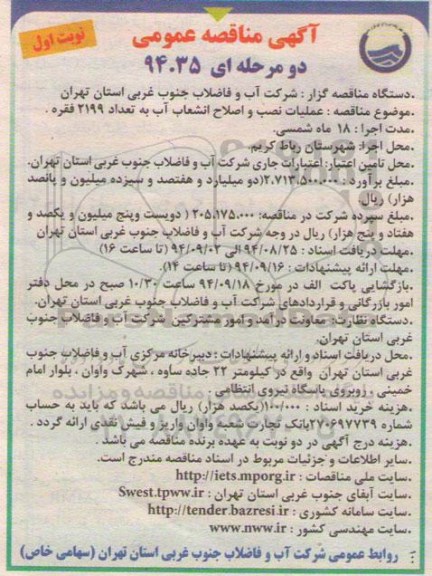 نوبت اول
آگهی مناقصه عمومی
دو مرحله ای ۹۴.۳۵
.دستگاه مناقصه گزار : شرکت آب و فاضلاب جنوب غربی استان تهران
.موضوع مناقصه : عملیات نصب و اصلاح انشعاب آب به تعداد ۲۱۹۹ فقره .
.مدت اجرا : ۱۸ ماه شمسی.
.محل اجرا: شهرستان رباط کریم
.محل تامین اعتبار: اعتبارات جاری شرکت آب و فاضلاب جنوب غربی استان تهران.
.مبلغ برآورد : ۲.۷۱۳.۵۰۰.۰۰۰(دو میلیارد و هفتصد و سیزده میلیون و پانصد
هزار) ریال
.مبلغ سپرده شرکت در مناقصه: ۲۰۵.۱۷۵.۰۰۰ ( دویست وپنج میلیون و یکصد و
هفتاد و پنج هزار) ریال در وجه شرکت آب و فاضلاب جنوب غربی استان تهران
.مهلت دریافت اسناد : ۹۴/۰۸/۲۵ الی ۹۴/۰۹/۰۲ (تا ساعت ۱۶)
.مهلت ارائه پیشنهادات : ۹۴/۰۹/۱۶ (تا ساعت ۱۴).
.بازگشایی پاکت الف در مورخ ۹۴/۰۹/۱۸ ساعت ۱۰/۳۰ صبح در محل دفتر
امور بازرگانی و قراردادهای شرکت آب و فاضلاب جنوب غربی استان تهران.
.دستگاه نظارت: معاونت درآمد و امور مشترکین شرکت آب و فاضلاب جنوب
غربی استان تهران.
.محل دریافت اسناد و ارائه پیشنهادات : دبیرخانه مرکزی آب و فاضلاب جنوب
غربی استان تهران واقع در کیلومتر ۲۲ جاده ساوه ، شهرک واوان ، بلوار امام
خمینی ، روبروی پاسگاه نیروی انتظامی .
.هزینه خرید اسناد : ۱۰۰/۰۰۰(یکصد هزار) ریال می باشد که باید به حساب
شماره ۲۷۰۶۹۷۷۳۹بانک تجارت شعبه واوان واریز و فیش نقدی ارائه گردد .
.هزینه درج آگهی در دو نوبت به عهده برنده مناقصه می باشد .
.سایر اطلاعات و جزئیات مربوط در اسناد مناقصه مندرج است.
.سایت ملی مناقصات : http://iets.mporg.ir
.سایت آبفای جنوب غربی استان تهران : Swest.tpww.ir
.سایت سامانه کشوری : http://tender.bazresi.ir
.سایت مهندسی کشور : www.nww.ir
روابط عمومی شرکت آب و فاضلاب جنوب غربی استان تهران (سهامی خاص)